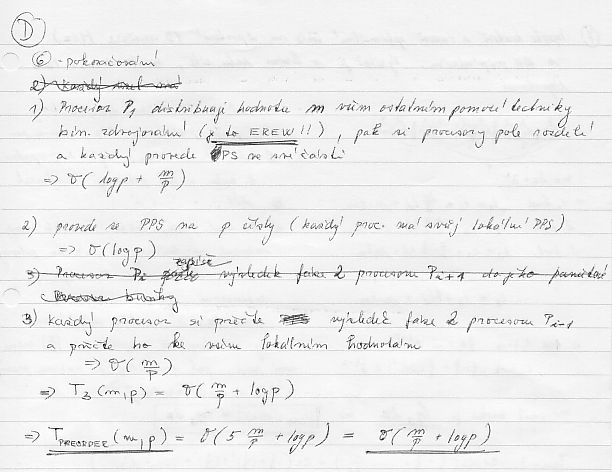 D
6 - pokračování
2) Každý uzel má
1) Procesor P1 distribuuje hodnotu m všem ostatním pomocí techniky
bin. zdvojování (je to EREW!!), pak si procesory pole rozdělí
a každý provede PPS ve své části
⇒ O(log p + m/p)
2) provede se PPS na p čísly (každý proc. má svůj lokální PPS)
⇒ O(log p)
zapíše
3) Procesor Pi výsledek fáze 2 procesoru Pi+1 do jeho paměťové
buňky
3) každý procesor si přečte výsledek fáze 2 procesoru Pi-1
a přičte ho ke všem lokálním hodnotám
⇒ O(m/p)
⇒ T3(m,p) = O(m/p + log p)
⇒ TPREORDER(m,p) = O(5 m/p + log p) = O(m/p + log p)